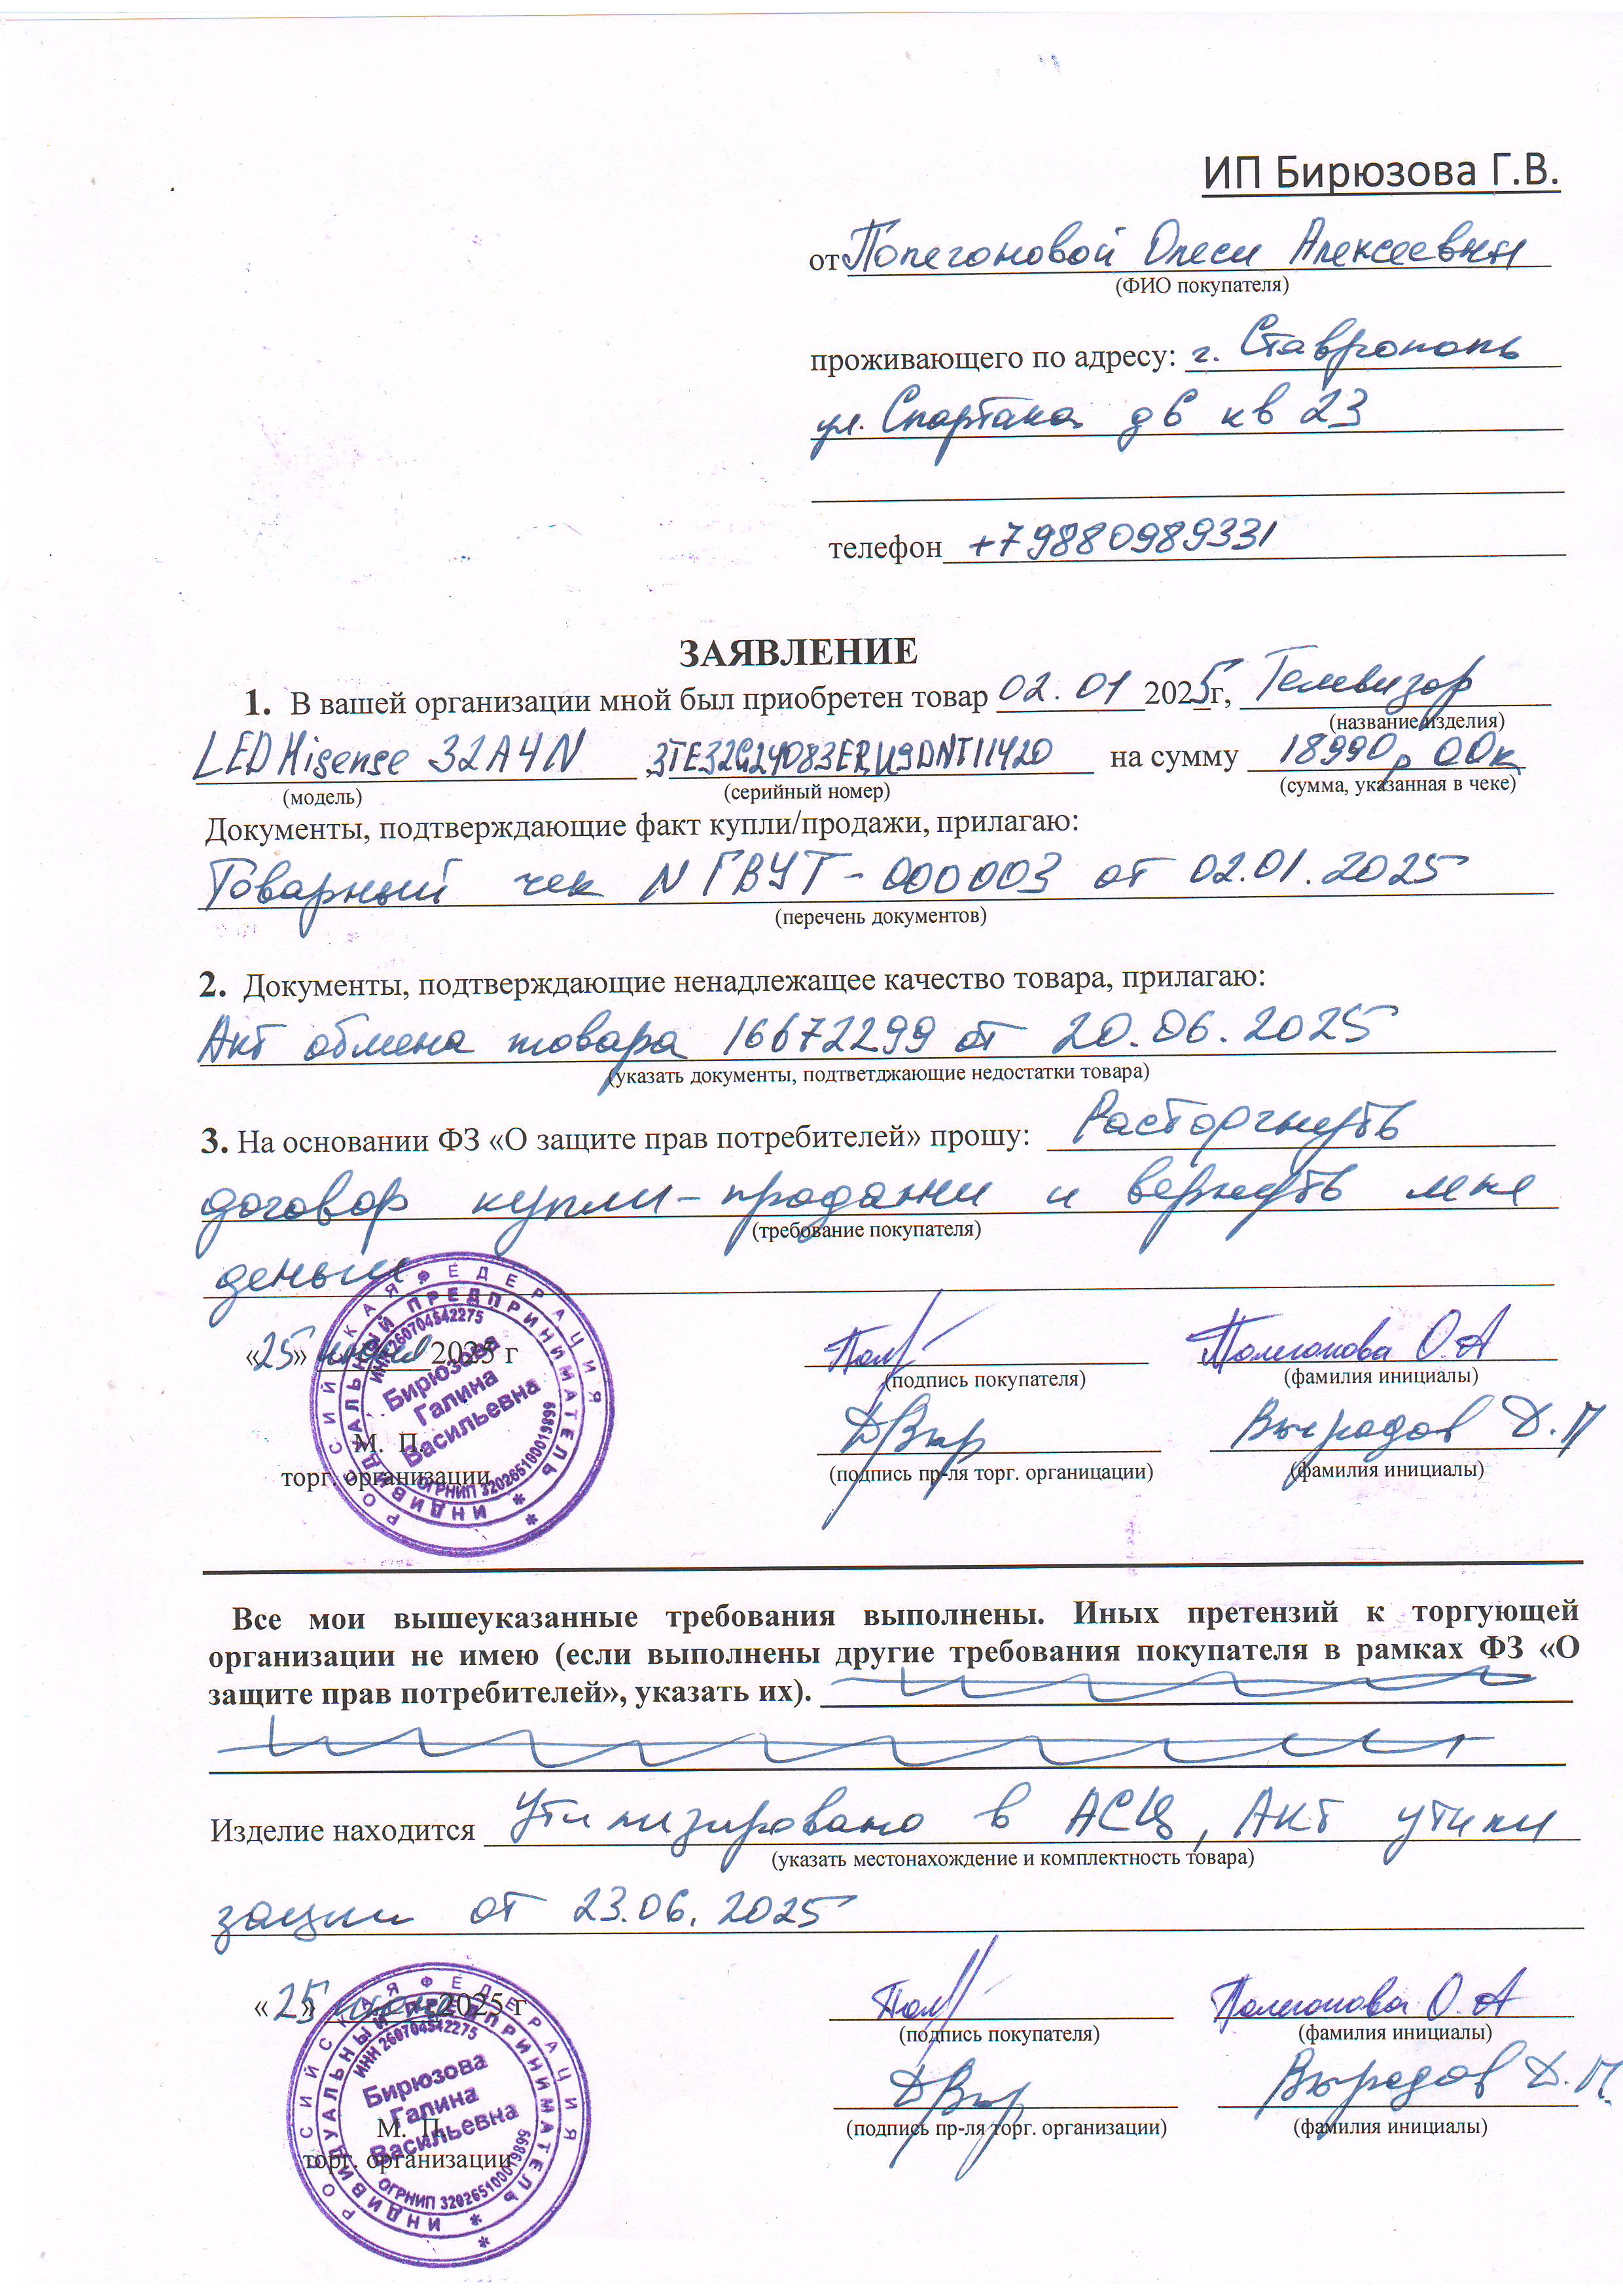 ИП Бирюзова Г.В.
от Полегоновой Олеси Алексеевны
(ФИО покупателя)
проживающего по адресу: г. Ставрополь
ул. Спартака д 6 кв 23
телефон +79880989331
ЗАЯВЛЕНИЕ
1. В вашей организации мной был приобретен товар 02.01 2025г, Телевизор
(название изделия)
LED Hisense 32A4N 3TE32G24083ERU9DNT11420 на сумму 18990р 00к
(модель) (серийный номер) (сумма, указанная в чеке)
Документы, подтверждающие факт купли/продажи, прилагаю:
Товарный чек N ГВУТ-000003 от 02.01.2025
(перечень документов)
2. Документы, подтверждающие ненадлежащее качество товара, прилагаю:
Акт обмена товара 16672299 от 20.06.2025
(указать документы, подтветджающие недостатки товара)
3. На основании ФЗ «О защите прав потребителей» прошу: Расторгнуть
договор купли-продажи и вернуть мне
(требование покупателя)
деньги.
«25» 2025 г Полегонова О.А
(подпись покупателя) (фамилия инициалы)
Выродов Д.П
М. П.
торг. организации (подпись пр-ля торг. органицации) (фамилия инициалы)
РОССИЙСКАЯ ФЕДЕРАЦИЯ
ИНДИВИДУАЛЬНЫЙ ПРЕДПРИНИМАТЕЛЬ
ИНН 260704542275
Бирюзова
Галина
Васильевна
ОГРНИП 320265100019899
Все мои вышеуказанные требования выполнены. Иных претензий к торгующей
организации не имею (если выполнены другие требования покупателя в рамках ФЗ «О
защите прав потребителей», указать их).
Изделие находится Утилизировано в АСЦ, Акт утили
(указать местонахождение и комплектность товара)
зации от 23.06.2025
«25» 2025 г Полегонова О.А
(подпись покупателя) (фамилия инициалы)
Выродов Д.П.
М. П.
торг. организации (подпись пр-ля торг. организации) (фамилия инициалы)
РОССИЙСКАЯ ФЕДЕРАЦИЯ
ИНДИВИДУАЛЬНЫЙ ПРЕДПРИНИМАТЕЛЬ
ИНН 260704542275
Бирюзова
Галина
Васильевна
ОГРНИП 320265100019899